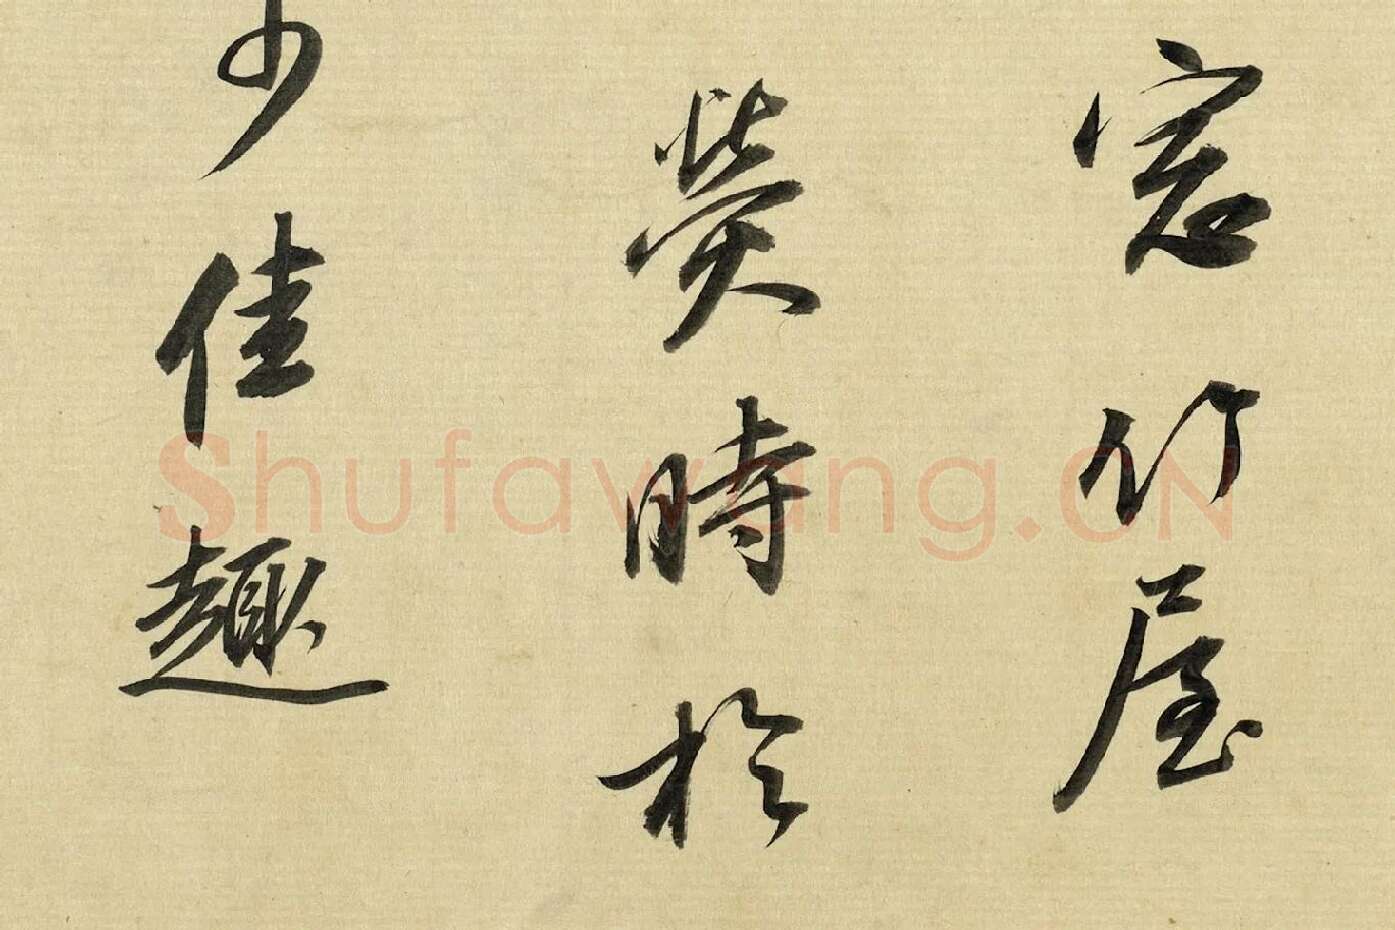 窓竹屋
熒時於
少佳趣
Shufawang.CN